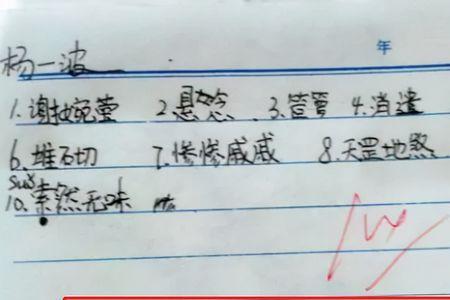 年
杨一波
1. 谢拉宛莹 2. 悬念 3. 管 4. 消遣
6. 堆石切 7. 惨惨戚戚 8. 天罡地煞
sux
10. 索然无味